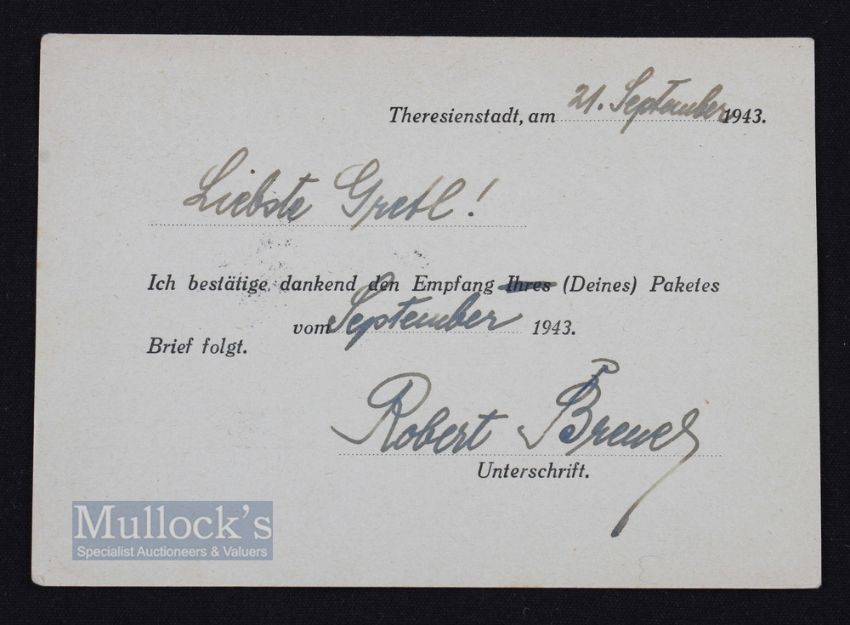 Theresienstadt, am 21. September 1943.
Liebste Gretl!
Ich bestätige dankend den Empfang Ihres (Deines) Paketes
vom September 1943.
Brief folgt.
Robert Breuer
Unterschrift.
Mullock's
Specialist Auctioneers & Valuers